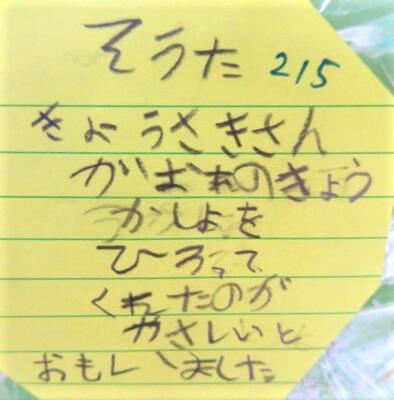 そうた 215
きょうさきさん
がぼくのきょう
かしょを
ひろって
くれたのが
やさしいと
おもいました